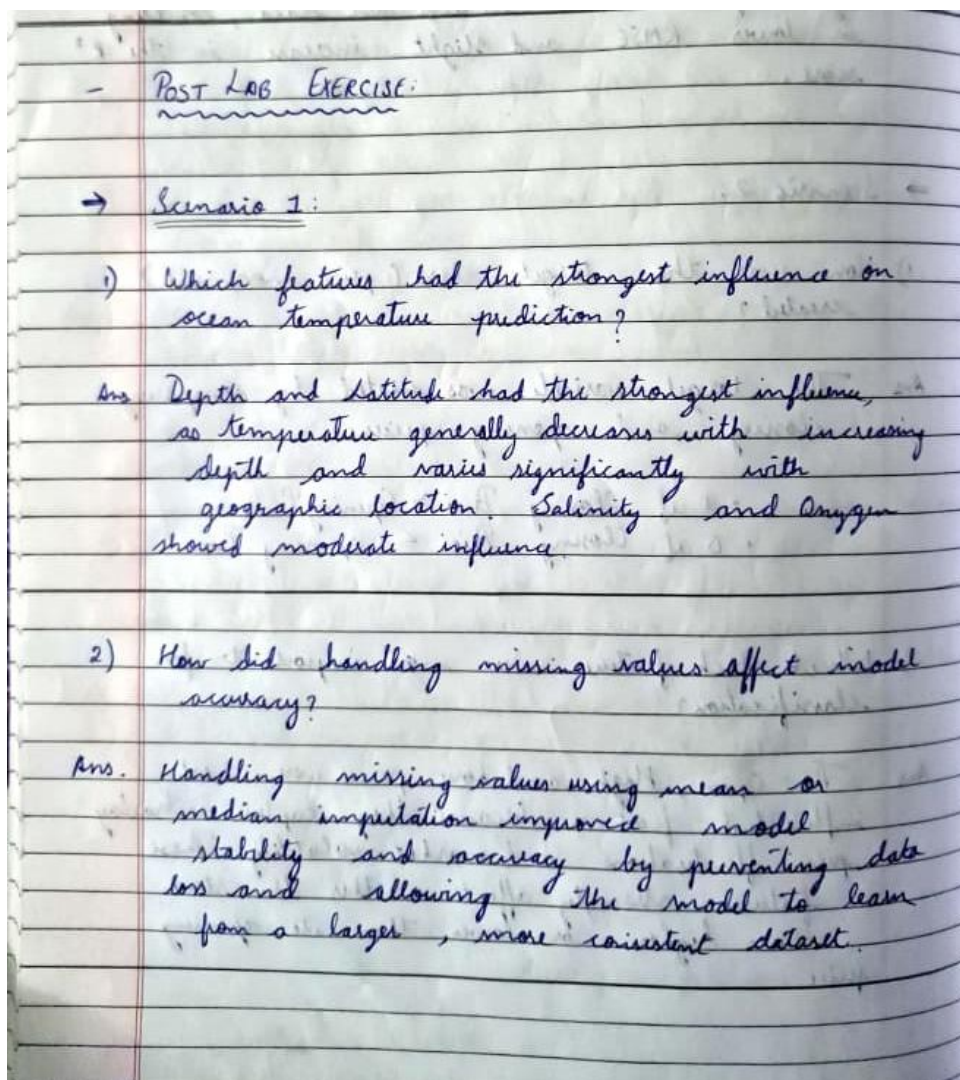 - POST LAB EXERCISE:
→ Scenario 1:
1) Which features had the strongest influence on
ocean temperature prediction?
Ans Depth and Latitude had the strongest influence,
as temperature generally decreases with increasing
depth and varies significantly with
geographic location. Salinity and Oxygen
showed moderate influence
2) How did handling missing values affect model
accuracy?
Ans. Handling missing values using mean or
median imputation improved model
stability and accuracy by preventing data
loss and allowing the model to learn
from a larger, more consistent dataset.